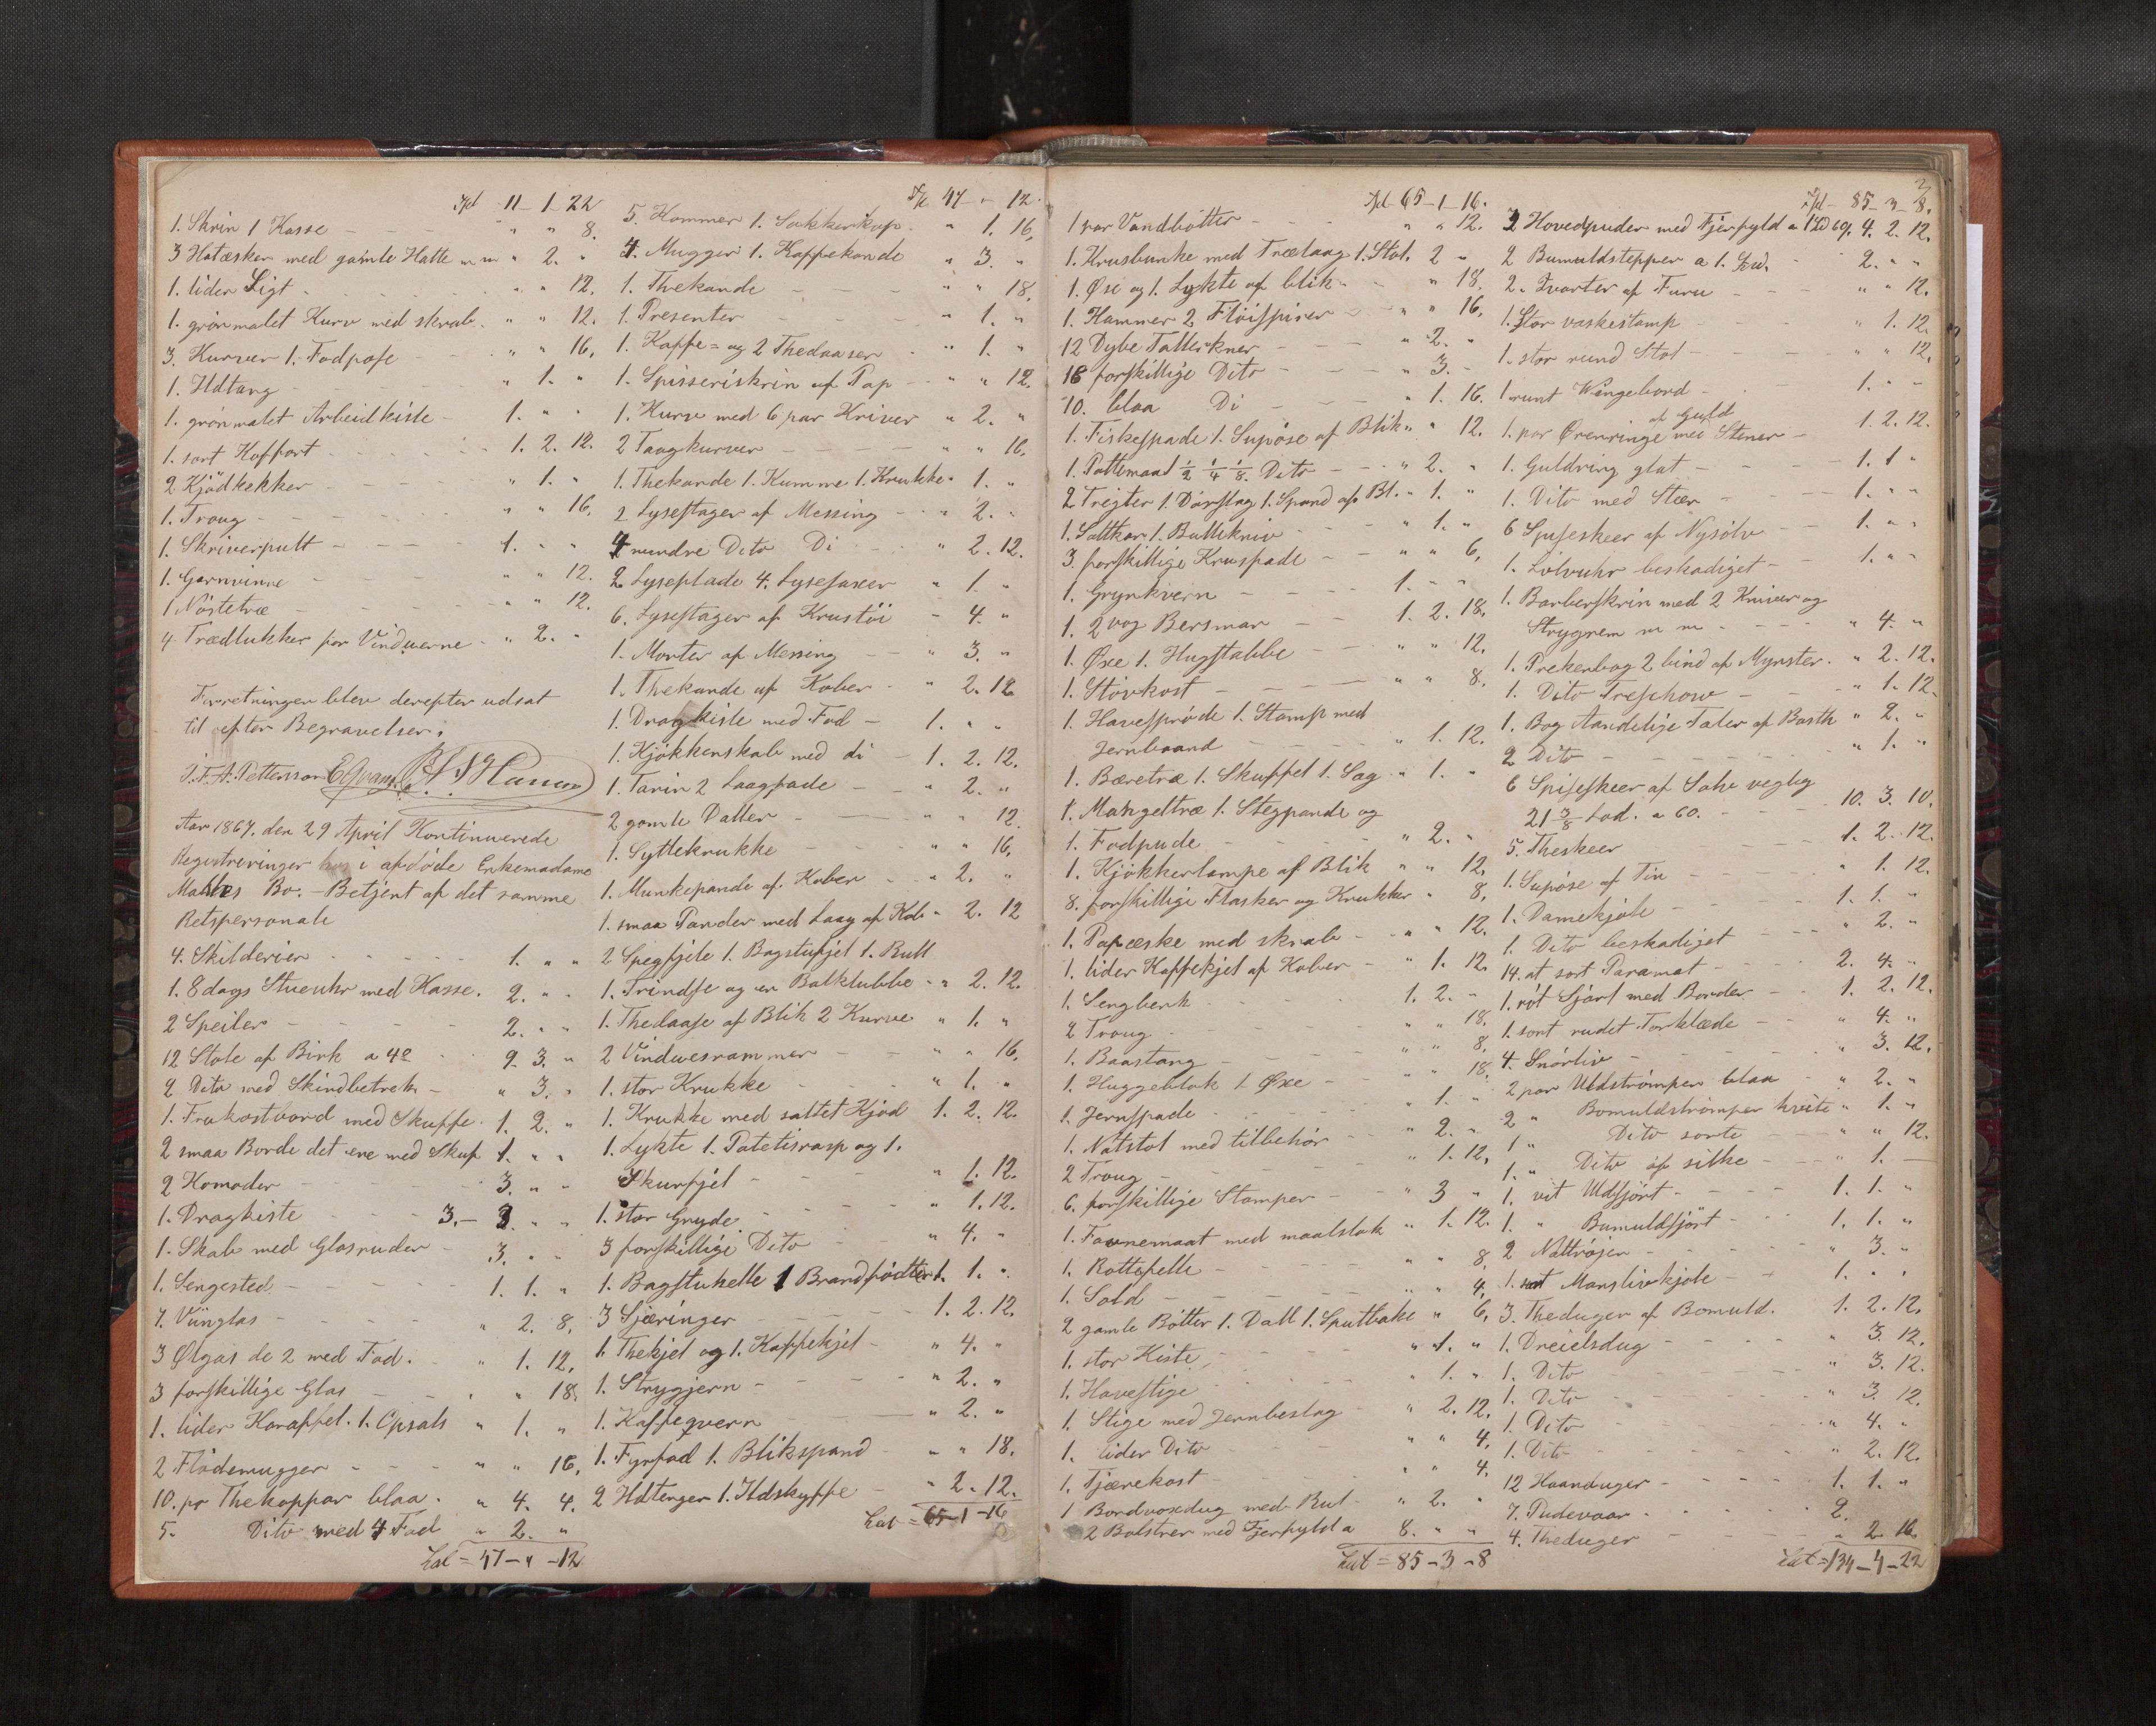 Spd 11-1-22
1. Skrin 1 Kasse - - " " 8.
3 Hatæsker med gamle Hatte m m " 2. "
1. liden Ligt - - " " 12.
1. grønmalet Kurv med skrab. " " 12.
3. Kurver 1. Fodpose - " " 16.
1. Ildtang - - " 1. "
1. grønmalet Arbeidkiste - 1. " "
1. sort Koffort - - 1. 2. 12.
2 Kjødkekker - - " 1. "
1. Troug - - " " 16.
1. Skriverpult - - 1. " "
1. Garnvinne - - " " 12.
1 Nøstetræ - - " " 12.
4. Trædlukker for Vinduerne - " 2. "
Forretningen blev derefter udsat
til efter Begravelsen.
J. F. A. Pettersson
Aar 1867. den 29 April Kontinuerede
Registreringen hos i afdøde Enkemadame
Bo. - Betjent af det samme
Retspersonale
4. Skilderier - - 1. " "
1. 8dags Stueuhr med Kasse. 2. " "
2 Speiler - - 2. " "
12 Stole af Birk a 42 - 9. 3. "
2 Dito med Skindbetræk - " 3. "
1. Frokostbord med Skuffe. 1. 2. "
2 smaa Borde det ene med Skuf 1. " "
2 Komoder - - 3. " "
1. Dragkiste - - 3. - 3. " "
1. Skab med Glasruder - 3. " "
1. Sengested - - 1. 1. "
7. Viinglas - - " 2. 8.
3 Ølgas de 2 med Fod. - " 1. 12.
3 forskillige Glas - - " " 18.
1. liden Karaffel. 1. Opsats " 1. "
2 Flødemugger - - " " 16.
10. pr Thekoppar blaa. " 4. 4.
5- Dito med 4 Fad " 2. "
Lat = 47 - " - 12
Spd 47 " 12.
5. Kommer 1. Sukkerkop. " 1. 16.
4. Mugger 1. Kaffekande " 3. "
1. Thekande - - " " 18.
1. Presenter - - " 1. "
1. Kaffe= og 2 Thedaaser " 1. "
1. Spisseriskrin af Pap - " " 12.
1. Kurv med 6 par Kniver " 2. "
2 Taagkurver - - " " 16.
1. Thekande 1. Kumme 1. Krukke " 1. "
2 Lysestager af Messing - " 2. "
4 mindre Dito Di - " 2. 12.
2 Lyseplade 4. Lysesaxer " 1. "
6. Lysestager af Krustøi - 4. "
1. Morter af Messing - " 3. "
1. Thekande af Kober - " 2. 12
1. Dragkiste med Fod - 1. " "
1. Kjøkkenskab med di - 1. 2. 12.
1. Tarin 2 Laagfade - " 2. "
2 gamle Daller - - " 12.
1. Syltekrukke - - " " 16.
1. Munkepande af Kober - " 2. "
1. smaa Pander med Laag af Kob " 2. 12
2 Spegfjele 1. Bagstufjel 1. Rull
1. Trindse og en Balklubbe " 2. 12.
1. Thedaase af Blik 2 Kurve " 1. "
2 Vinduesrammer - " " 16.
1. stor Krukke - - " 1. "
1. Krukke med saltet Kjød 1. 2. 12.
1. Lykte 1. Potetisrasp og 1.
Skurfjel - - " 1. 12.
1. stor Gryde - - " 1. 12.
3 forskillige Dito - " 4. "
1. Bagstuhelle 1 Brandfødtter 1. 1. "
3 Sjæringer - - 1. 2. 12.
1. Thekjel og 1. Kaffekjel - " 4. "
1. Strygjern - - " 2. "
1. Kaffeqvern - - " 2. "
1. Fyrfad 1. Blikspand - " " 18.
2 Ildtenger 1. Ildskyffe - " 2. 12.
Lat = 65-1-16
Spd 65-1-16.
1 par Vandbøtter - - " " 12.
1. Krusbunke med Trælaag 1. Stol. 2 "
1. Øse og 1. Lykte af blik - " 18.
1. Hammer 2 Fløispirer - " " 16.
12 Dybe Tallerkner - - " 2. "
18 forskillige Dito - - " 3. -
10. blaa Di - - " 1. 16.
1. Fiskespade 1. Supøse af Blik " " 12.
1. Pottemaal ½ ¼ ⅛. Dito - - " 2. "
2 Tregter 1. Dørslag 1. Spand af Bl. " 1. "
1. Saltkar 1. Bullekniv - - " 1. "
3. forskillige Krusfade - - " " 6.
1. Grynkvern - - 1. - "
1. 2 vog Bersmar - - 1. 2. 18.
1. Øxe 1. Hugstabbe - - " " 12.
1. Støvkost - - " " 8.
1. Havesprøde 1. Stamp med
Jernbaand - - " 1. 12.
1. Bæretræ 1. Skuffel 1. Sag " 1. "
1. Mangeltræ 1. Stegpande og
1. Fodpude - - " 2. "
1. Kjøkkenlampe af Blik " " 12.
8. forskillige Flasker og Krukker " 8.
1. Papæske med skrab - " " 12.
1. liden Kaffekjel af Kober - " 1. 12.
1. Sengbenk - - 1. 2. "
2 Troug - - " " 18.
1. Baastang - - " " 8.
1. Huggeblok 1. Øxe - - " " 18.
1. Jernspade - - " 1. "
1. Natstol med tilbehør - " 2. "
2 Troug - - " 1. 12.
6. forskillige Stamper - - " 3 "
1. Favnemaat med maalstok " 1. 12.
1. Rottefelle - - " " 8.
1. Sold - - " " 4.
2 gamle Bøtter 1. Dall 1. Sputbake " 6.
1. stor Kiste - - " 1. "
1. Havestige - - " 1. "
1. Stige med Jernbeslag - " 2. 12.
1. liden Dito - - " " 4.
1. Tjærekost - - " " 4.
1 Bordvoxdug med Rul - " 2. "
2 Bolstrer med Fjerfyld a 8. " "
Lat = 85-3-8
3
Spd - 85-3-8.
2 Hovedpuder med Fjerfyld a 4. 2. 12.
2 Bumuldstepper a 1. Spd. - 2. " "
2. Qvarter af Furu - - " " 12.
1. Stor vaskestamp - - " 1. 12.
1. stor rund Stol - - " " 12.
1 runt Wingebord - - 1. " -
af Guld
1. par Ørenringe med Stener - 1. 2. 12.
1. Guldring glat - - 1. 1 "
1. Dito med Steen - - 1. " "
6 Spiseskeer af Nysølv - 1. " "
1. Sølvuhr beskadiget - 1. " "
1. Barberskrin med 2 Kniver og
Strygrem m m - - " 4. "
1. Prekenbog 2 bind af Mynster. " 2. 12.
1. Dito Treschow - - " 1. 12.
1. Bog Aandelige Taler af Barth " 2. "
2 Dito - - " 1. "
6 Spiseskeer af Sølv
21 3/8 Lod. a 60. - 10. 3. 10.
5. Theskeer - - 1. 2. 12.
1. Supøse af Tin - - " 1. 12.
1. Damekjole - - 1. 1. "
1. Dito beskadiget - - " 2. "
14. al sort Paramat - - 2. 4. "
1. røt Sjørt med Border - - 1. 2. 12.
1. sort rudet Torklæde - - " 4. "
4. Snørliv - - " 3. 12.
2 par Uldstrømper blaa - " 2. "
2 " Bomuldstrømper hvite " 1. "
1 " Dito sorte - " " 12.
1. " Dito af silke - " 1. -
1. vit Uldsjørt - - 1. 1. "
1. " Bumuldsjørt - - 1. 1. "
2 Nattrøjer - - " 3. "
1. sort Manslivkjole - - 1. " "
3. Theduger af Bomuld. 1. 2. 12.
1. Dreielsdug - - " 3. 12.
1. Dito - - " 3. 12.
1. Dito - - " 3. 12.
1. Dito - - " 4. "
1. Dito - - " 2. 12.
12 Haanduger - - 1. 1. "
7. Pudevaar - - 2.
4. Theduger - - " 2. 16.
Lat = 134-4-22